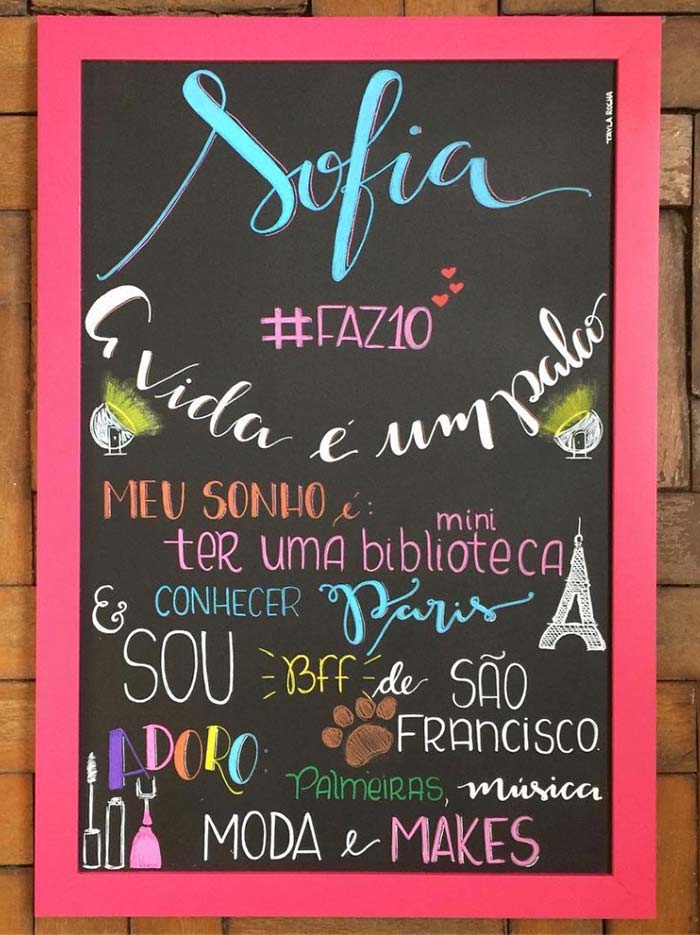 Sofia
TAYLA ROCHA
#FAZ10
A vida é um palco
MEU SONHO é:
ter uma mini biblioteca
& CONHECER Paris
SOU BFF de SÃO
FRANCISCO.
ADORO:
PALMEIRAS, música
MODA e MAKES